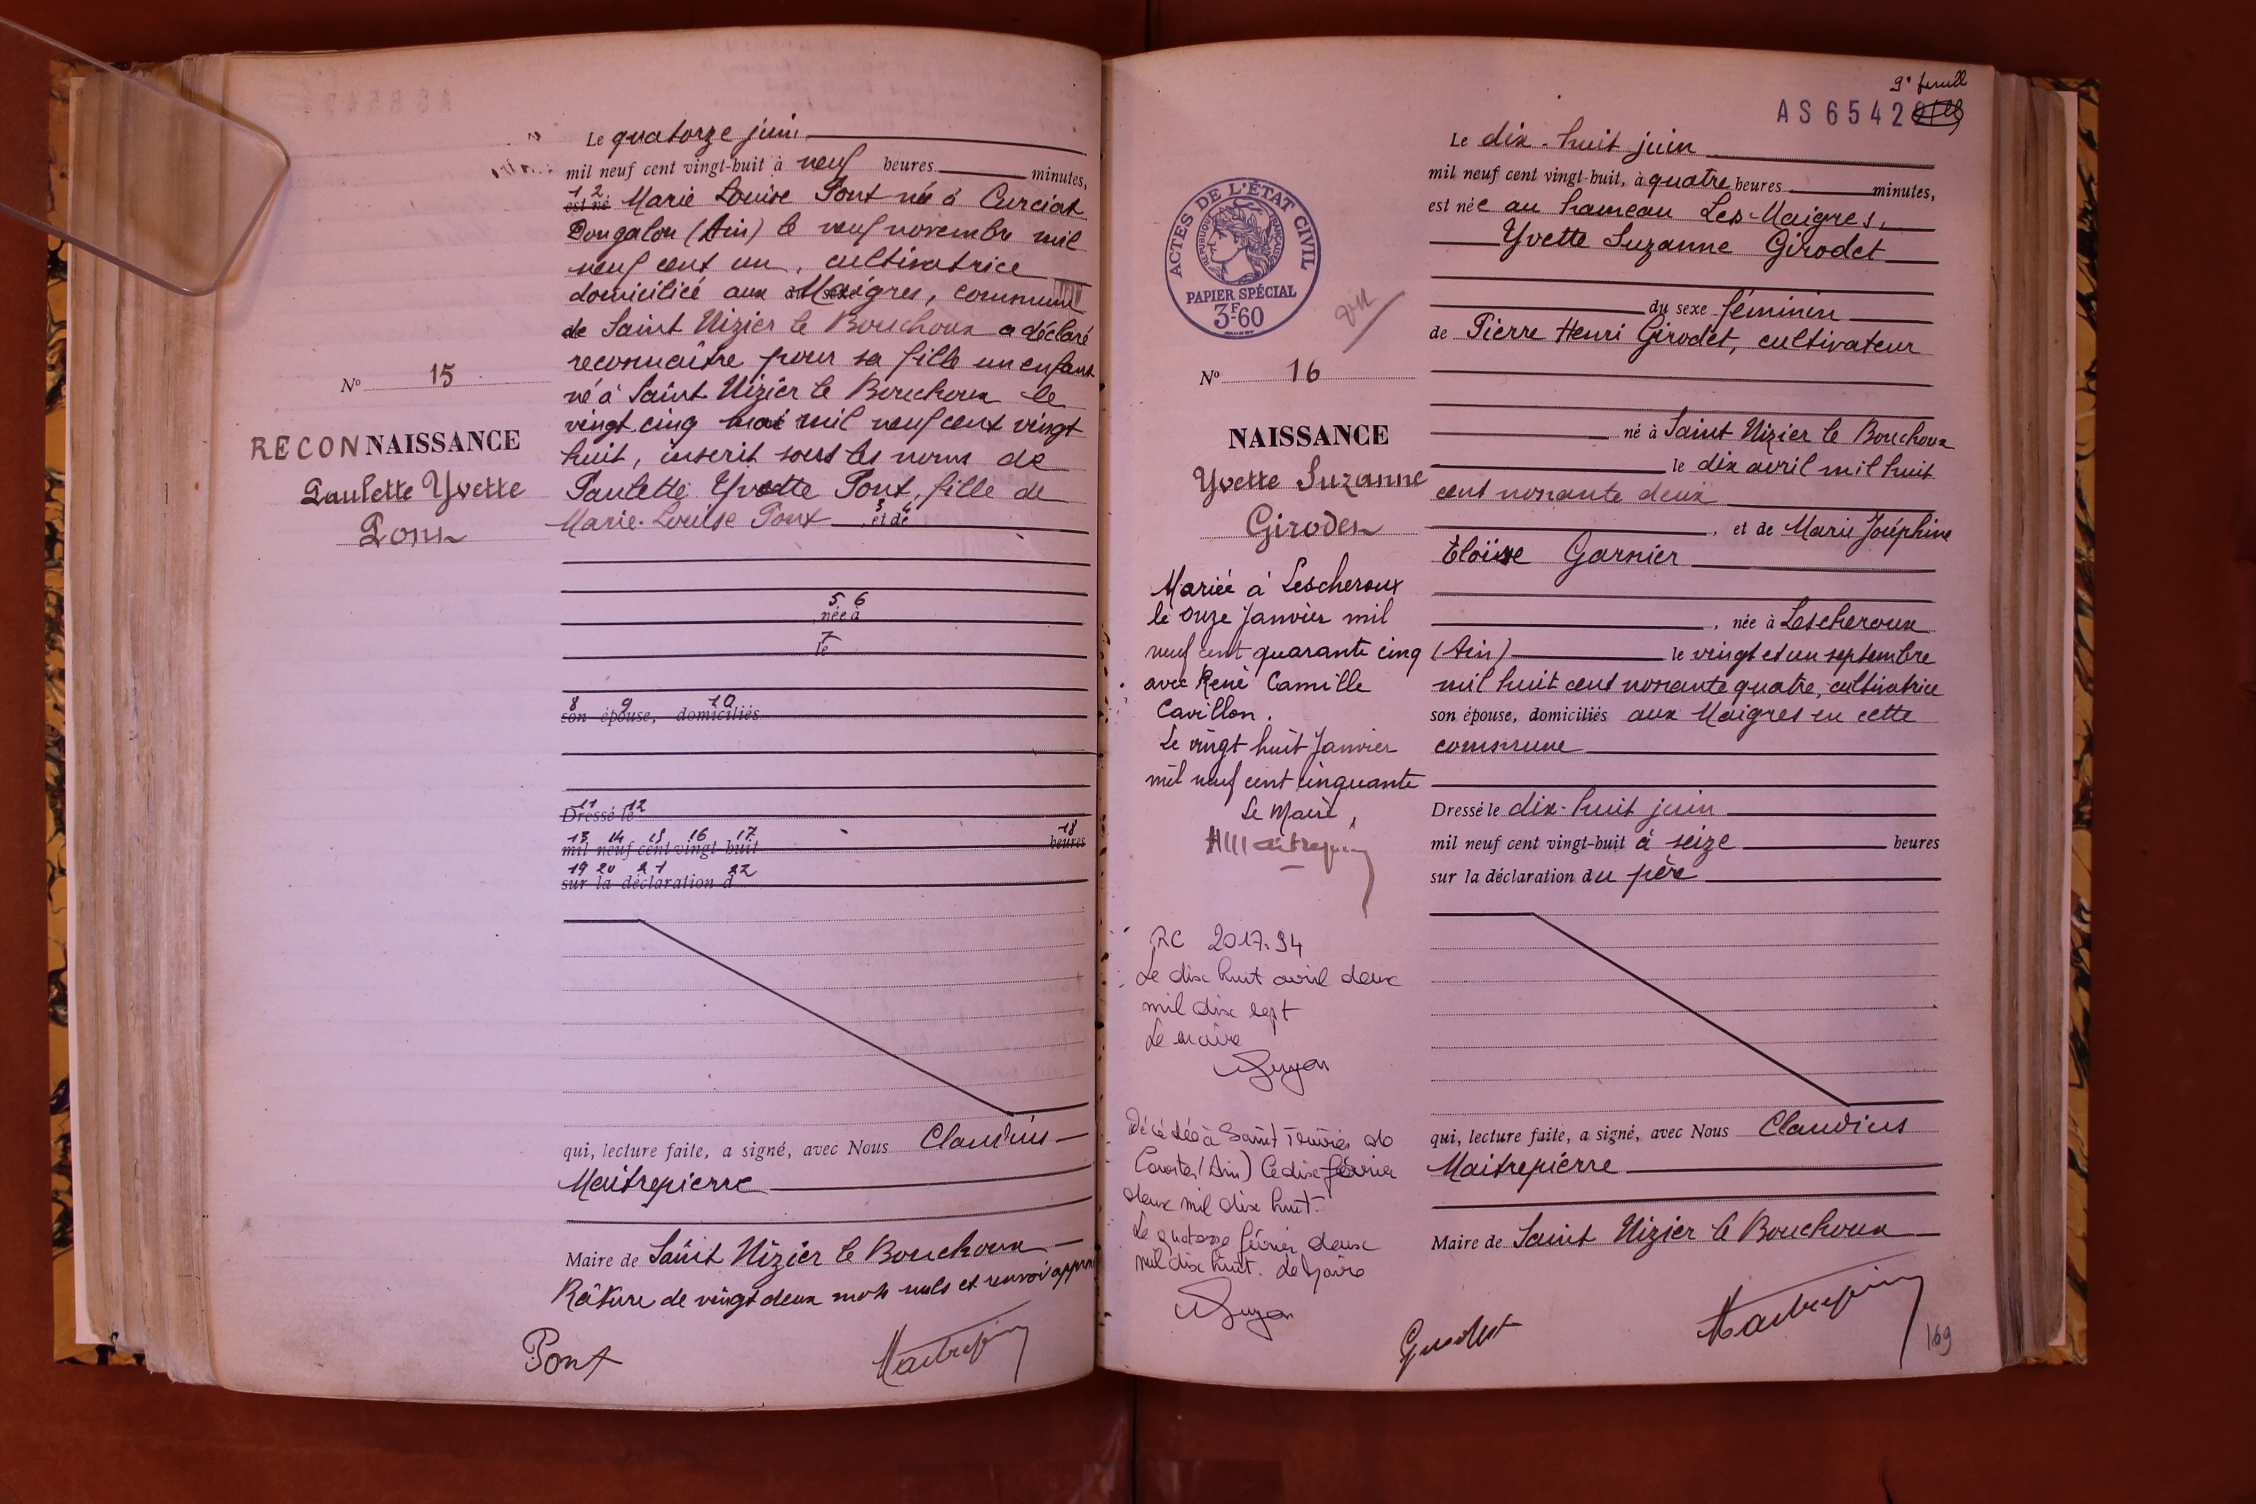 Le quatorze juin
mil neuf cent vingt-huit à neuf heures minutes,
1 2
est né Marie Louise Pont née à Curciat
Dongalon (Ain) le neuf novembre mil
neuf cent un, cultivatrice
domiciliée aux du sexe Maigres, commune
de Saint Nizier le Bouchoux a déclaré
reconnaître pour sa fille un enfant
né à Saint Nizier le Bouchoux le
vingt cinq mai mil neuf cent vingt
huit, inscrit sous les noms de
Paulette Yvette Pont, fille de
Marie-Louise Pont et de
5 6
née à
7
le
8 9 10
son épouse, domiciliés
11 12
Dressé le
13 14 15 16 17 18
mil neuf cent vingt-huit heures
19 20 21 22
sur la déclaration d
qui, lecture faite, a signé, avec Nous Claudius
Maitrepierre
Maire de Saint Nizier le Bouchoux
Râture de vingt deux mots nuls et renvoi approu
Pont
Maitrepierre
N° 15
RECONNAISSANCE
Paulette Yvette
Pont
9e feuill
AS6542
ACTES DE L'ÉTAT CIVIL
RÉPUBLIQUE FRANÇAISE
PAPIER SPÉCIAL
3F60
N° 16
NAISSANCE
Yvette Suzanne
Girodet
Mariée à Lescheroux
le onze Janvier mil
neuf cent quarante cinq
avec René Camille
Cavillon.
Le vingt huit Janvier
mil neuf cent cinquante
Le Maire,
RC 2017.94
Le dix huit avril deux
mil dix sept
Le maire
Guyon
Décédée à Saint Trivier de
Courtes (Ain) le dix février
deux mil dix huit.
Le quatorze février deux
mil dix huit. Le Maire
Guyon
Le dix-huit juin
mil neuf cent vingt-huit, à quatre heures minutes,
est née au hameau Les-Maigres,
Yvette Suzanne Girodet
du sexe féminin
de Pierre Henri Girodet, cultivateur
né à Saint Nizier le Bouchoux
le dix avril mil huit
cent nonante deux
, et de Marie Joséphine
Eloïse Garnier
, née à Lescheroux
(Ain) le vingt et un septembre
mil huit cent nonante quatre, cultivatrice
son épouse, domiciliés aux Maigres en cette
commune
Dressé le dix-huit juin
mil neuf cent vingt-huit à seize heures
sur la déclaration du père
qui, lecture faite, a signé, avec Nous Claudius
Maitrepierre
Maire de Saint Nizier le Bouchoux
Girodet
Maitrepierre
169